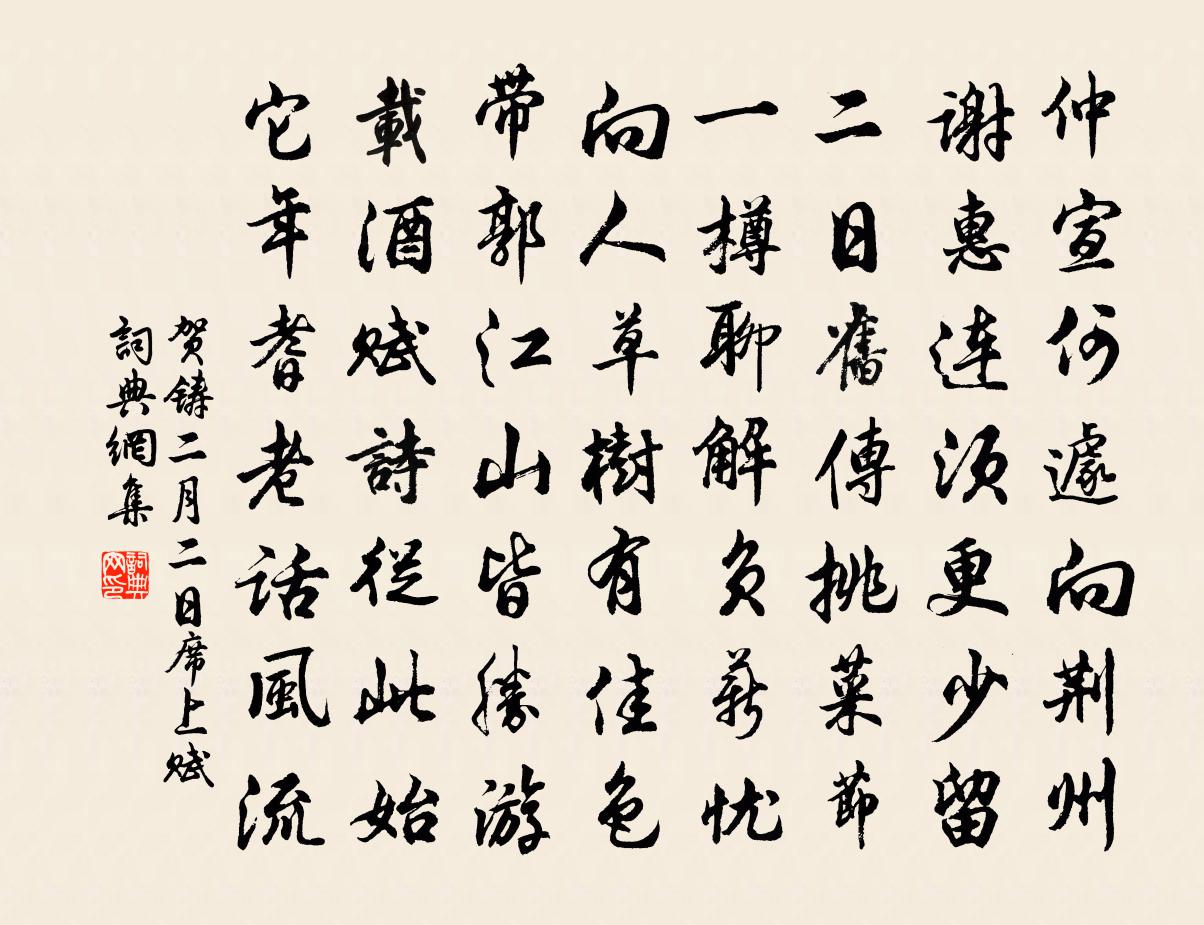 仲宣何遽向荆州
謝惠連須更少留
二日舊傳挑菜節
一樽聊解負薪忧
向人草樹有佳色
带郭江山皆勝游
載酒賦詩從此始
它年耆老話風流
贺鑄二月二日席上赋
詞典網集
詞典網印